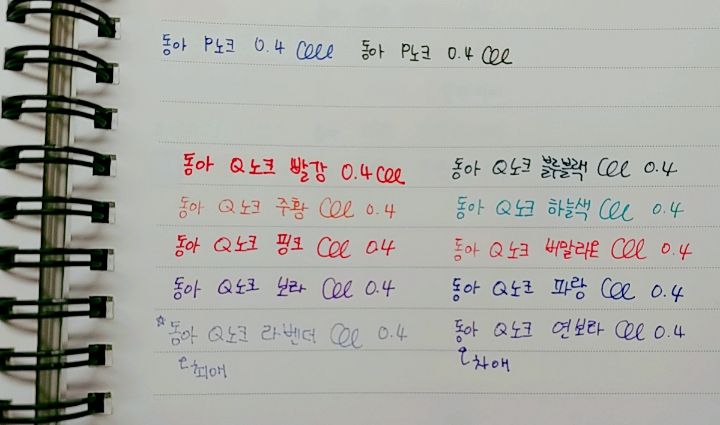 동아 P노크 0.4 동아 P노크 0.4
동아 Q노크 빨강 0.4 동아 Q노크 블루블랙 0.4
동아 Q노크 주황 0.4 동아 Q노크 하늘색 0.4
동아 Q노크 핑크 0.4 동아 Q노크 버밀라온 0.4
동아 Q노크 보라 0.4 동아 Q노크 파랑 0.4
☆동아 Q노크 라벤더 0.4 동아 Q노크 연보라 0.4
최애 차애